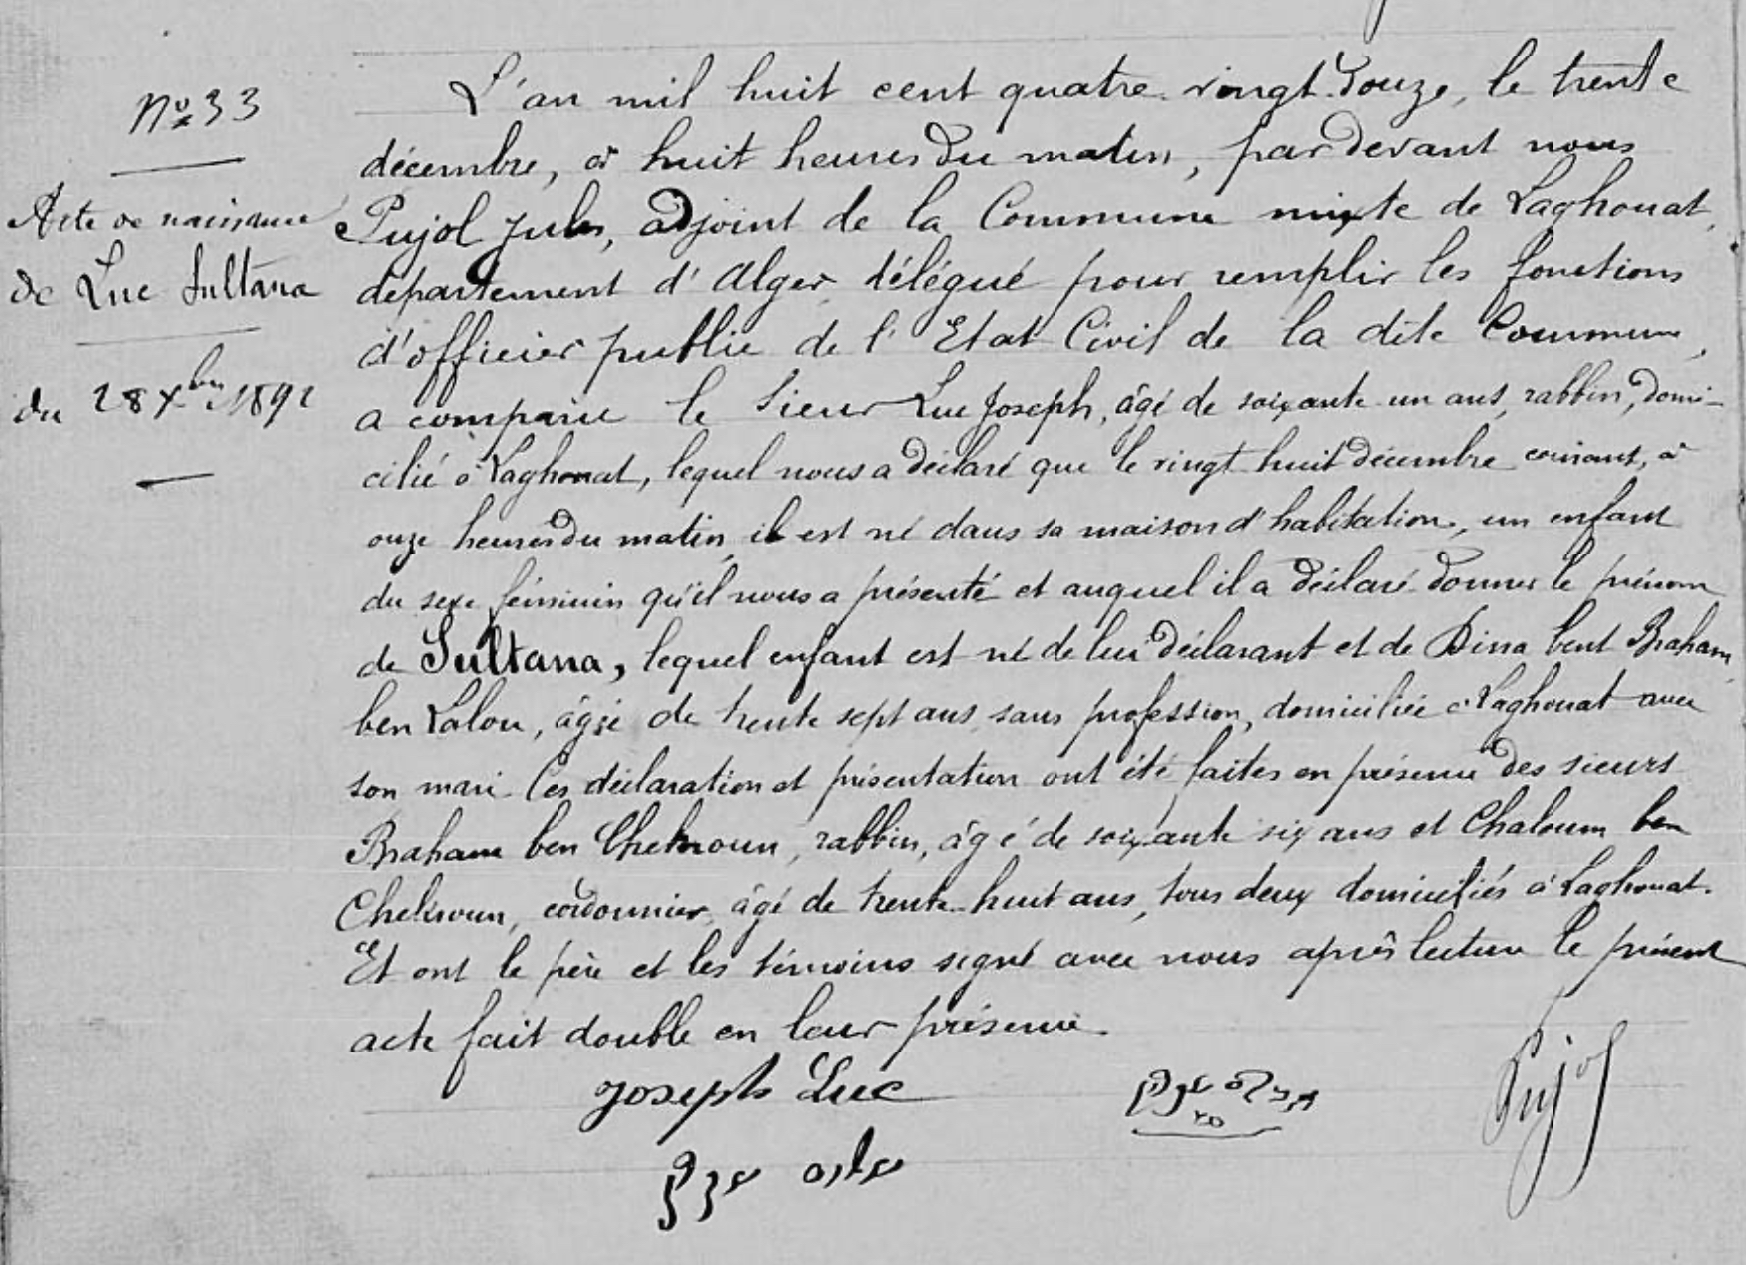 No 33
Acte de naissance
de Luc Sultana
du 28 Xbre 1892
L'an mil huit cent quatre vingt douze, le trente
décembre, à huit heures du matin, pardevant nous
Pujol Jules, adjoint de la Commune mixte de Laghouat,
departement d'Alger délégué pour remplir les fonctions
d'officier public de l'Etat Civil de la dite Commune,
a comparu le sieur Luc Joseph, âgé de soixante un ans, rabbin, domi-
cilié à Laghouat, lequel nous a déclaré que le vingt huit décembre courant, à
onze heures du matin, il est né dans sa maison d'habitation, un enfant
du sexe féminin qu'il nous a présenté et auquel il a déclaré donner le prénom
de Sultana, lequel enfant est né de lui déclarant et de Dina bent Braham
ben Lalou, âgée de trente sept ans, sans profession, domiciliée à Laghouat avec
son mari. Ces déclaration et présentation ont été faites en présence des sieurs
Braham ben Cheknoun, rabbin, âgé de soixante six ans et Chaloum ben
Cheknoun, cordonnier, âgé de trente huit ans, tous deux domiciliés à Laghouat.
Et ont le père et les témoins signé avec nous après lecture le présent
acte fait double en leur présence.
Joseph Luc
Pujol